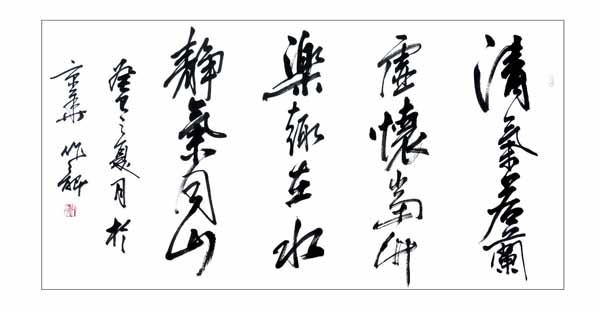 清氣若蘭
虛懷當竹
樂趣在水
靜氣同山
癸巳之夏月於
京華